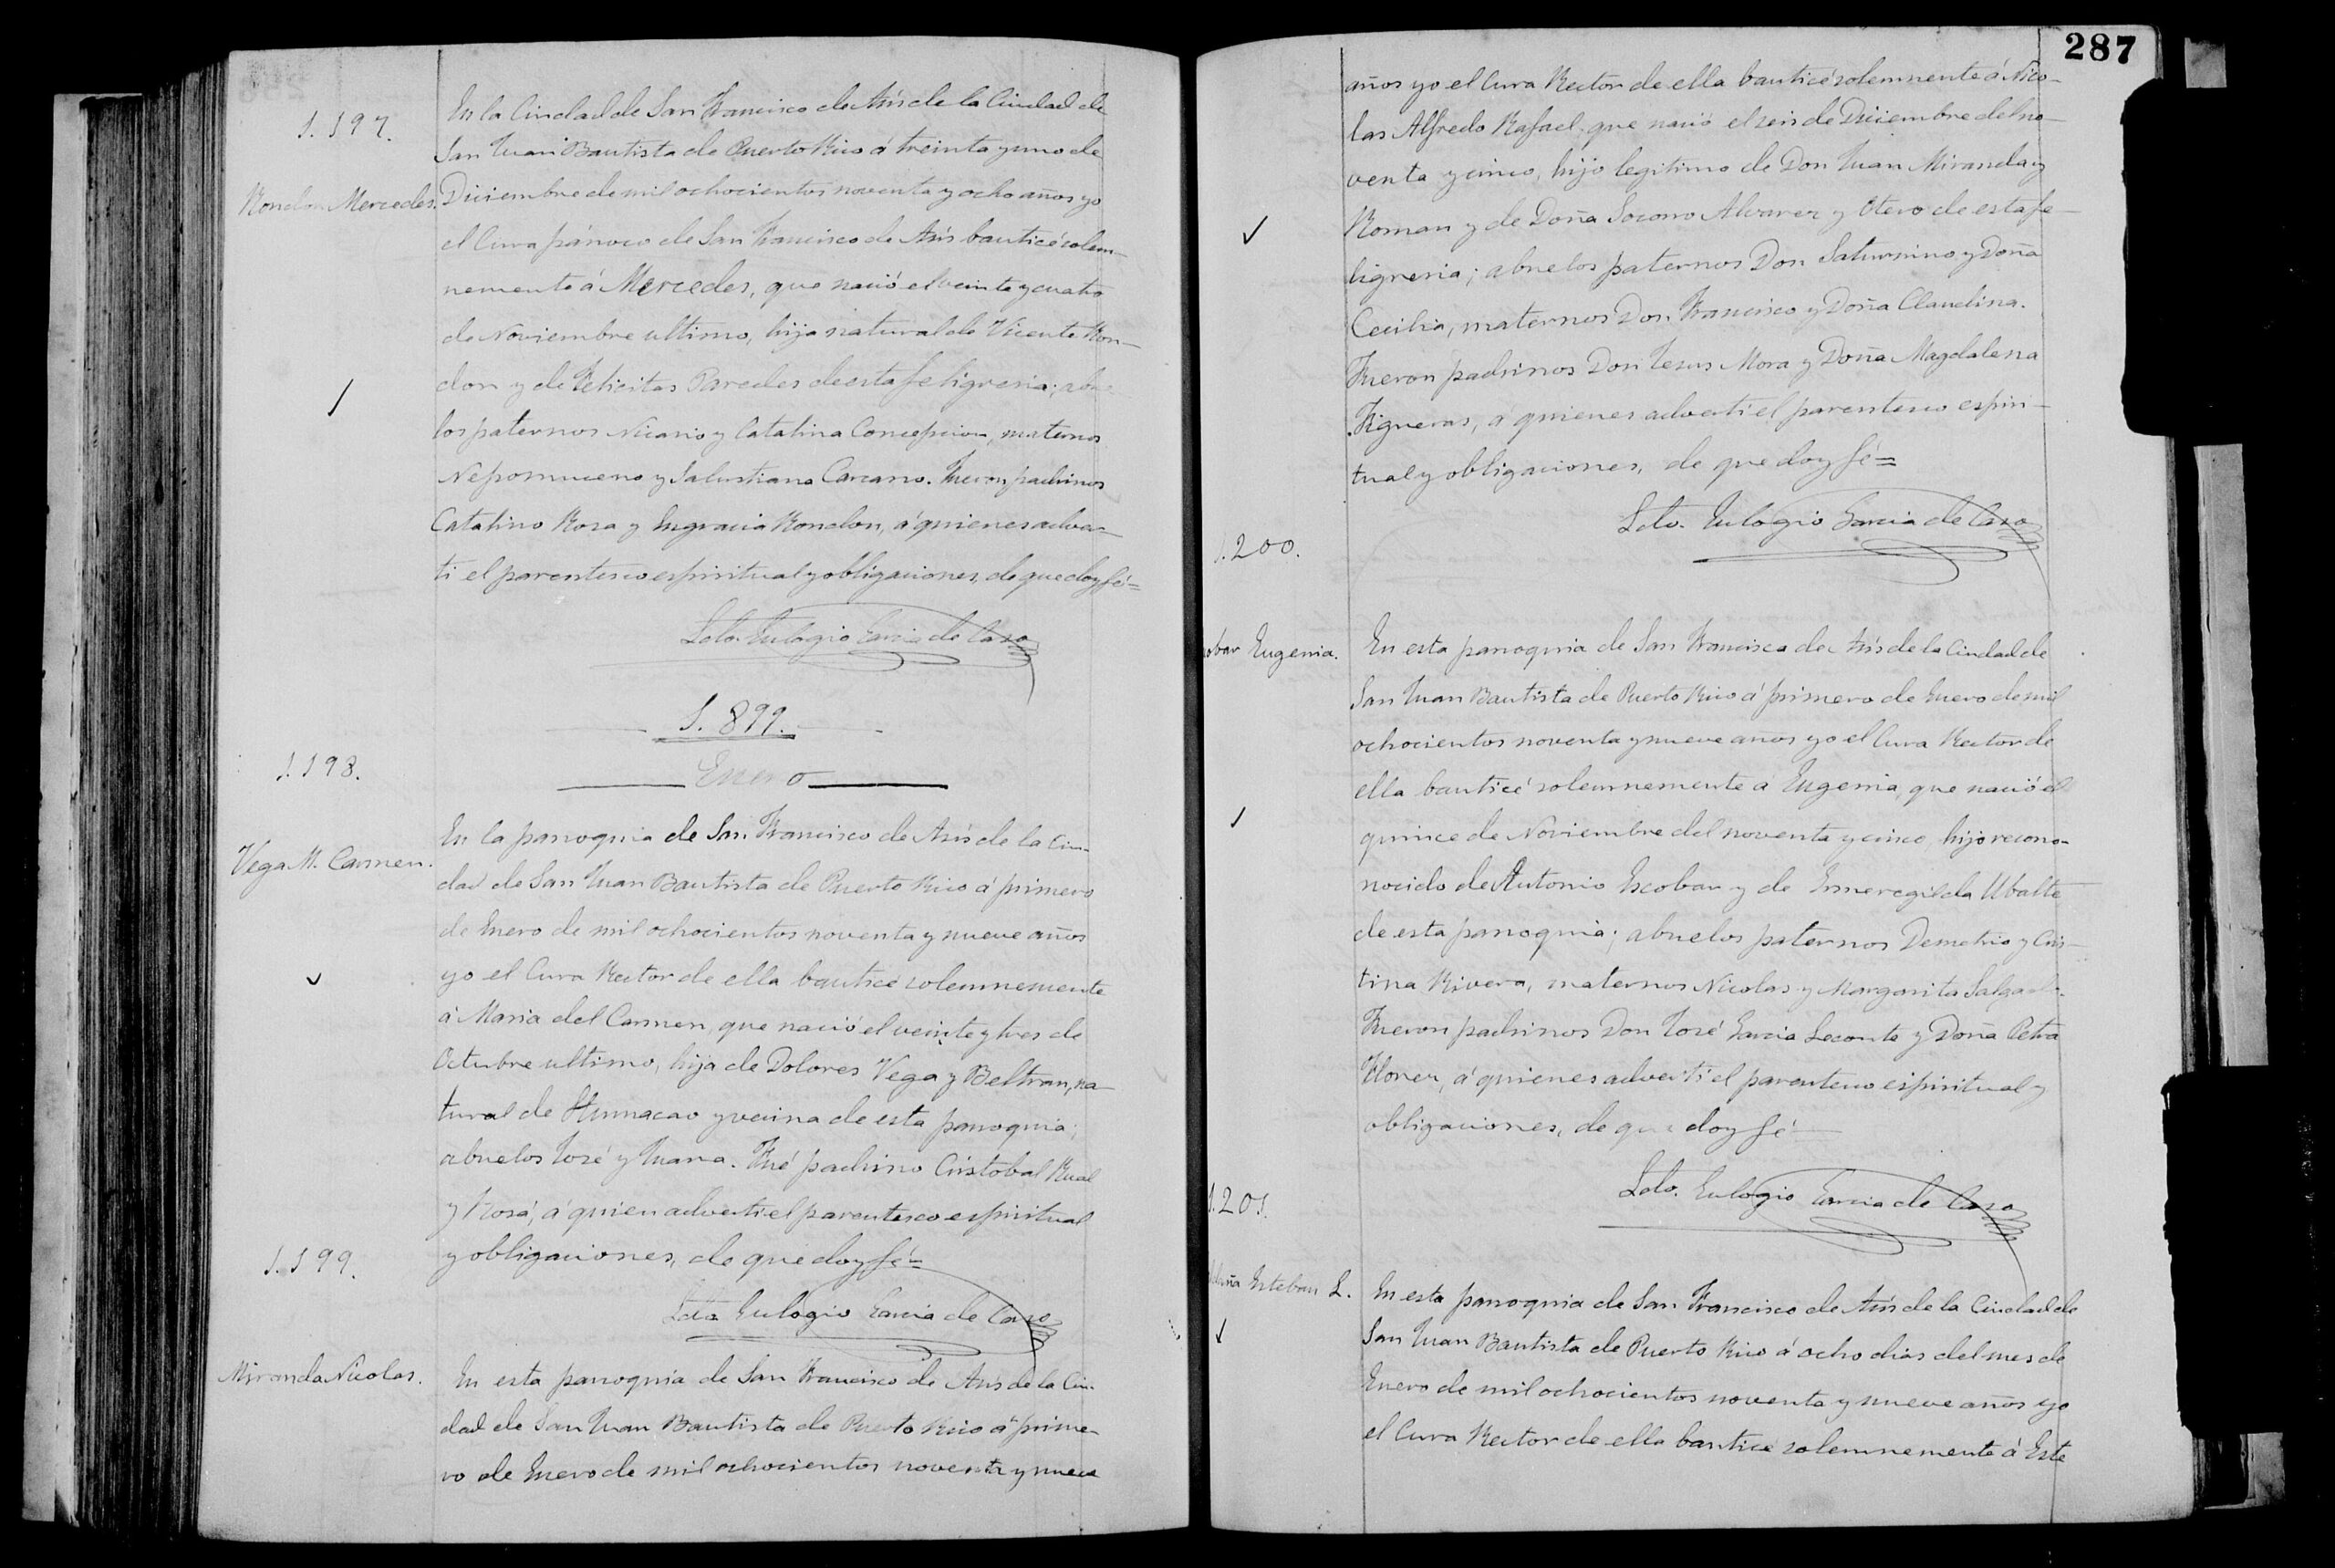 1.197.
Rondon Mercedes.
En la Ciudad de San Francisco de Asis de la Ciudad de
San Juan Bautista de Puerto Rico á treinta y uno de
Diciembre de mil ochocientos noventa y ocho años yo
el Cura párroco de San Francisco de Asis bauticé solem-
nemente á Mercedes, que nació el veinte y cuatro
de Noviembre ultimo, hija natural de Vicente Ron-
don y de Felicitas Paredes de esta feligresia; abue-
los paternos Nicasio y Catalina Concepcion, maternos
Nepomuceno y Salustiana Carcano. Fueron padrinos
Catalino Rosa y Engracia Rondon, á quienes adver-
ti el parentesco espiritual y obligaciones, de que doy fé=
Ldo. Eulogio Garcia de Caso
1.899.
Enero
1.198.
Vega M. Carmen.
En la parroquia de San Francisco de Asis de la Ciu-
dad de San Juan Bautista de Puerto Rico á primero
de Enero de mil ochocientos noventa y nueve años
yo el Cura Rector de ella bauticé solemnemente
á Maria del Carmen, que nació el veinte y tres de
Octubre ultimo, hija de Dolores Vega y Beltran, na-
tural de Humacao y vecina de esta parroquia;
abuelos José y Juana. Fué padrino Cristobal Rual
y Rosá, á quien adverti el parentesco espiritual
y obligaciones, de que doy fé=
Ldo. Eulogio Garcia de Caso
1.199.
Miranda Nicolas.
En esta parroquia de San Francisco de Asis de la Ciu-
dad de San Juan Bautista de Puerto Rico á prime-
ro de Enero de mil ochocientos noventa y nueve
287
años yo el Cura Rector de ella bauticé solemnente á Nico-
las Alfredo Rafael, que nació el seis de Diciembre del no-
venta y cinco, hijo legitimo de Don Juan Miranda y
Roman y de Doña Socorro Alvarez y Otero de esta fe-
ligresia; abuelos paternos Don Saturnino y Doña
Cecilia, maternos Don Francisco y Doña Claudina.
Fueron padrinos Don Jesus Mora y Doña Magdalena
Figueras, á quienes adverti el parentesco espiri-
tual y obligaciones, de que doy fé=
Ldo. Eulogio Garcia de Caso
1.200.
obar Eugenia.
En esta parroquia de San Francisco de Asis de la Ciudad de
San Juan Bautista de Puerto Rico á primero de Enero de mil
ochocientos noventa y nueve años yo el Cura Rector de
ella bauticé solemnemente a Eugenia, que nació el
quince de Noviembre del noventa y cinco, hijo recono-
nocido de Antonio Escobar y de Ermeregilda Ubalte
de esta parroquia; abuelos paternos Demetrio y Cris-
tina Rivera, maternos Nicolas y Margarita Salgado.
Fueron padrinos Don José Garcia Leconte y Doña Petra
Flores, á quienes adverti el parentesco espiritual y
obligaciones, de que doy fé
Ldo. Eulogio Garcia de Caso
1.201.
Esteban L.
En esta parroquia de San Francisco de Asis de la Ciudad de
San Juan Bautista de Puerto Rico á ocho dias del mes de
Enero de mil ochocientos noventa y nueve años yo
el Cura Rector de ella bautice solemnemente á Este